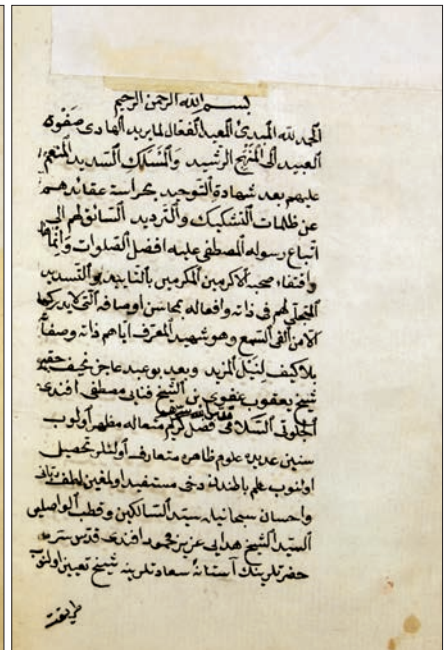 بسم الله الرحمن الرحيم
الحمد لله المبدئ المعيد الفعال لما يريد الهادى صفوة
العبيد الى المنهج الرشيد والمسلك السديد المنعم
عليهم بعد شهادة التوحيد بحراسة عقائدهم
عن ظلمات التشكيك والترديد السائق لهم الى
اتباع رسوله المصطفى عليه افضل الصلوات
واقتفاء صحبه الاكرمين المكرمين بالتاييد والتسديد
المتجلى لهم فى ذاته وافعاله بمحاسن اوصافه التى لا يدركها
الا من القى السمع وهو شهيد المعرف اياهم ذاته وصفا
بلا كيف لنيل المزيد وبعد بو عبد عاجز نحيف حقير
شيخ يعقوب عفوى بن الشيخ فنايى مصطفى افندى
الجلوتى السلامى فضل كريم متعاله مظهر اولوب
سنين عديده علوم ظاهره متعارف اولنلر تحصيل
اولنوب علم باطندن دخى مستفيد اولمغين لطف ربانى
واحسان سبحانيله سيد السالكين وقطب الواصلين
السيد الشيخ هدايى عزيز محمود افندى قدس سره
حضرتلرينك آستانۀ سعادتلرينه شيخ تعيين اولنوب
طريقت